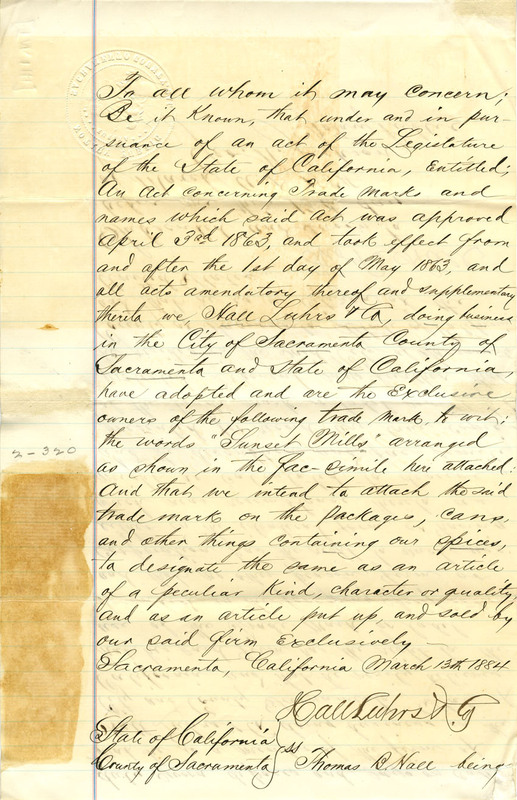 To all whom it may concern;
Be it Known, that under and in pur-
suance of an act of the Legislature
of the State of California, Entitled;
An Act concerning Trade Marks and
names which said Act was approved
April 3rd 1863, and took effect from
and after the 1st day of May 1863, and
all acts amendatory thereof and supplementary
thereto we, Hall Luhrs & Co, doing business
in the City of Sacramento County of
Sacramento and State of California,
have adopted and are the Exclusive
owners of the following trade mark, to wit;
the words "Sunset Mills" arranged
as shown in the fac-simile here attached.
2-320
And that we intend to attach the said
trade mark on the packages, cans,
and other things containing our spices,
to designate the same as an article
of a peculiar kind, character or quality
and as an article put up, and sold by
our said firm Exclusively
Sacramento, California March 13th 1884
Hall Luhrs & Co
State of California
County of Sacramento } ss Thomas B Hall being